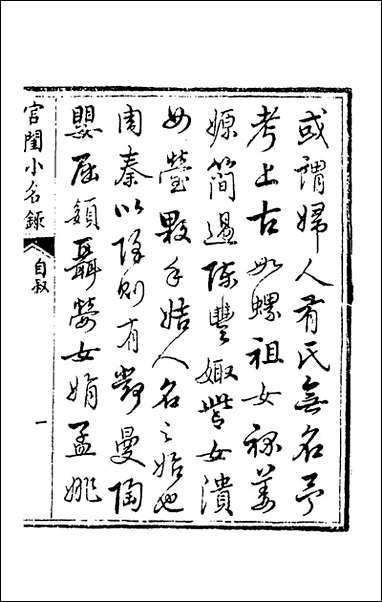 或謂婦人有氏無名予
考上古如螺祖女祿姜
嫄簡逷陳豐娵訾女潰
女瑩敤手人名之始也
周秦以降則有鄧曼陶
嬰屈頟聶嫈女娟孟姚
宮閨小名錄
自叙
一